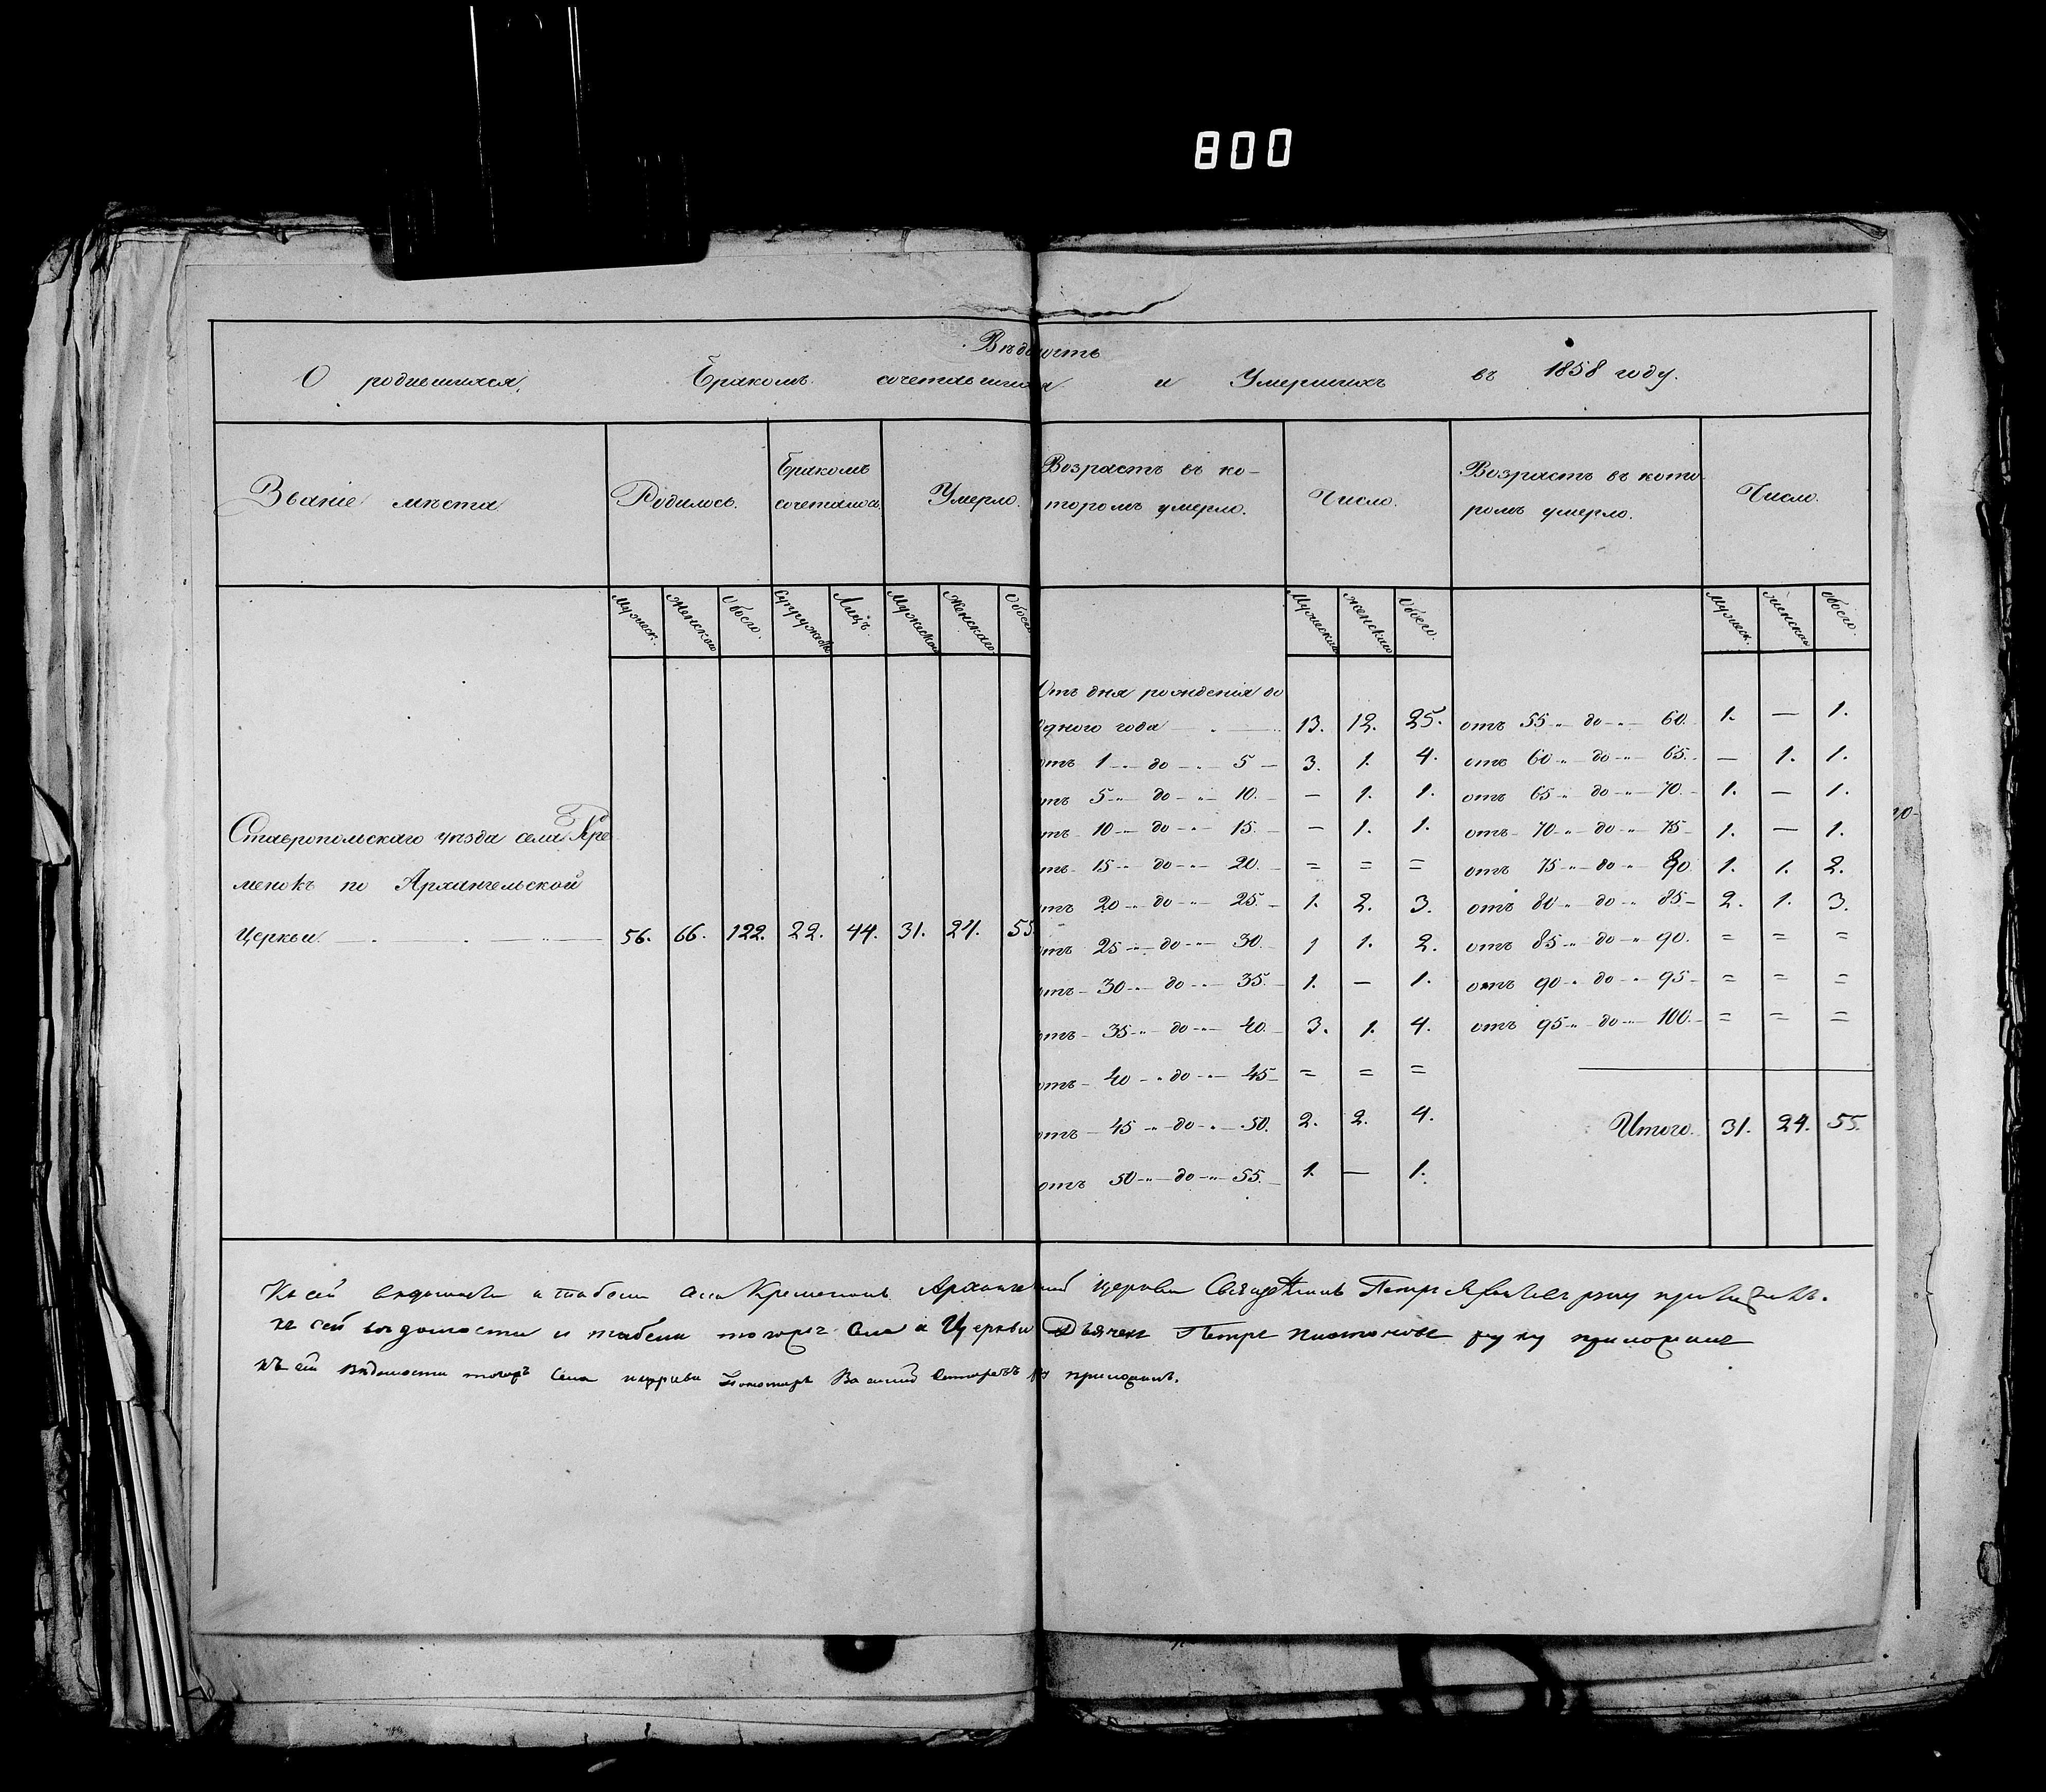 800
Вѣдомость
О родившихся, бракомъ сочетавшихся и Умершихъ въ 1858 году.
Званіе мѣста Родилось. Бракомъ сочеталось. Умерло. Возрастъ въ ко- Число. Возрастъ въ кото Число.
торомъ умерло. ромъ умерло.
Мужеск. Женскаго Обоего. Супружествъ Лицъ. Мужескаго Женскаго Обоего Мужескаго Женскаго Обоего. Мужеск. Женскаго Обоего.
Отъ дня рожденія до
Одного года 13. 12. 25. отъ 55 до 60. 1. — 1.
отъ 1 до 5 3. 1. 4. отъ 60 до 65. — 1. 1.
отъ 5 до 10. — 1. 1. отъ 65 до 70. 1. — 1.
отъ 10 до 15. — 1. 1. отъ 70 до 75 1. — 1.
отъ 15 до 20. = = = отъ 75 до 80 1. 1. 2.
отъ 20 до 25. 1. 2. 3. отъ 80 до 85 2. 1. 3.
отъ 25 до 30. 1 1. 2. отъ 85 до 90. = = =
отъ 30 до 35. 1. — 1. отъ 90 до 95 = = =
отъ 35 до 40. 3. 1. 4. отъ 95 до 100. = = =
отъ 40 до 45 = = =
отъ 45 до 50. 2. 2. 4. Итого. 31. 24. 55.
отъ 50 до 55. 1. — 1.
Ставропольскаго уѣзда села Кре
менокъ по Архангельской
Церкви. 56. 66. 122. 22. 44. 31. 24. 55.
Къ сей вѣдомости и табели села Кременокъ Архангельской церкви Священникъ Петръ руку приложилъ.
къ сей вѣдомости и табели тогожъ Села и Церкви Дьячекъ Петръ руку приложилъ
къ сей вѣдомости тогожъ села церкви Пономарь Василій руку приложилъ.